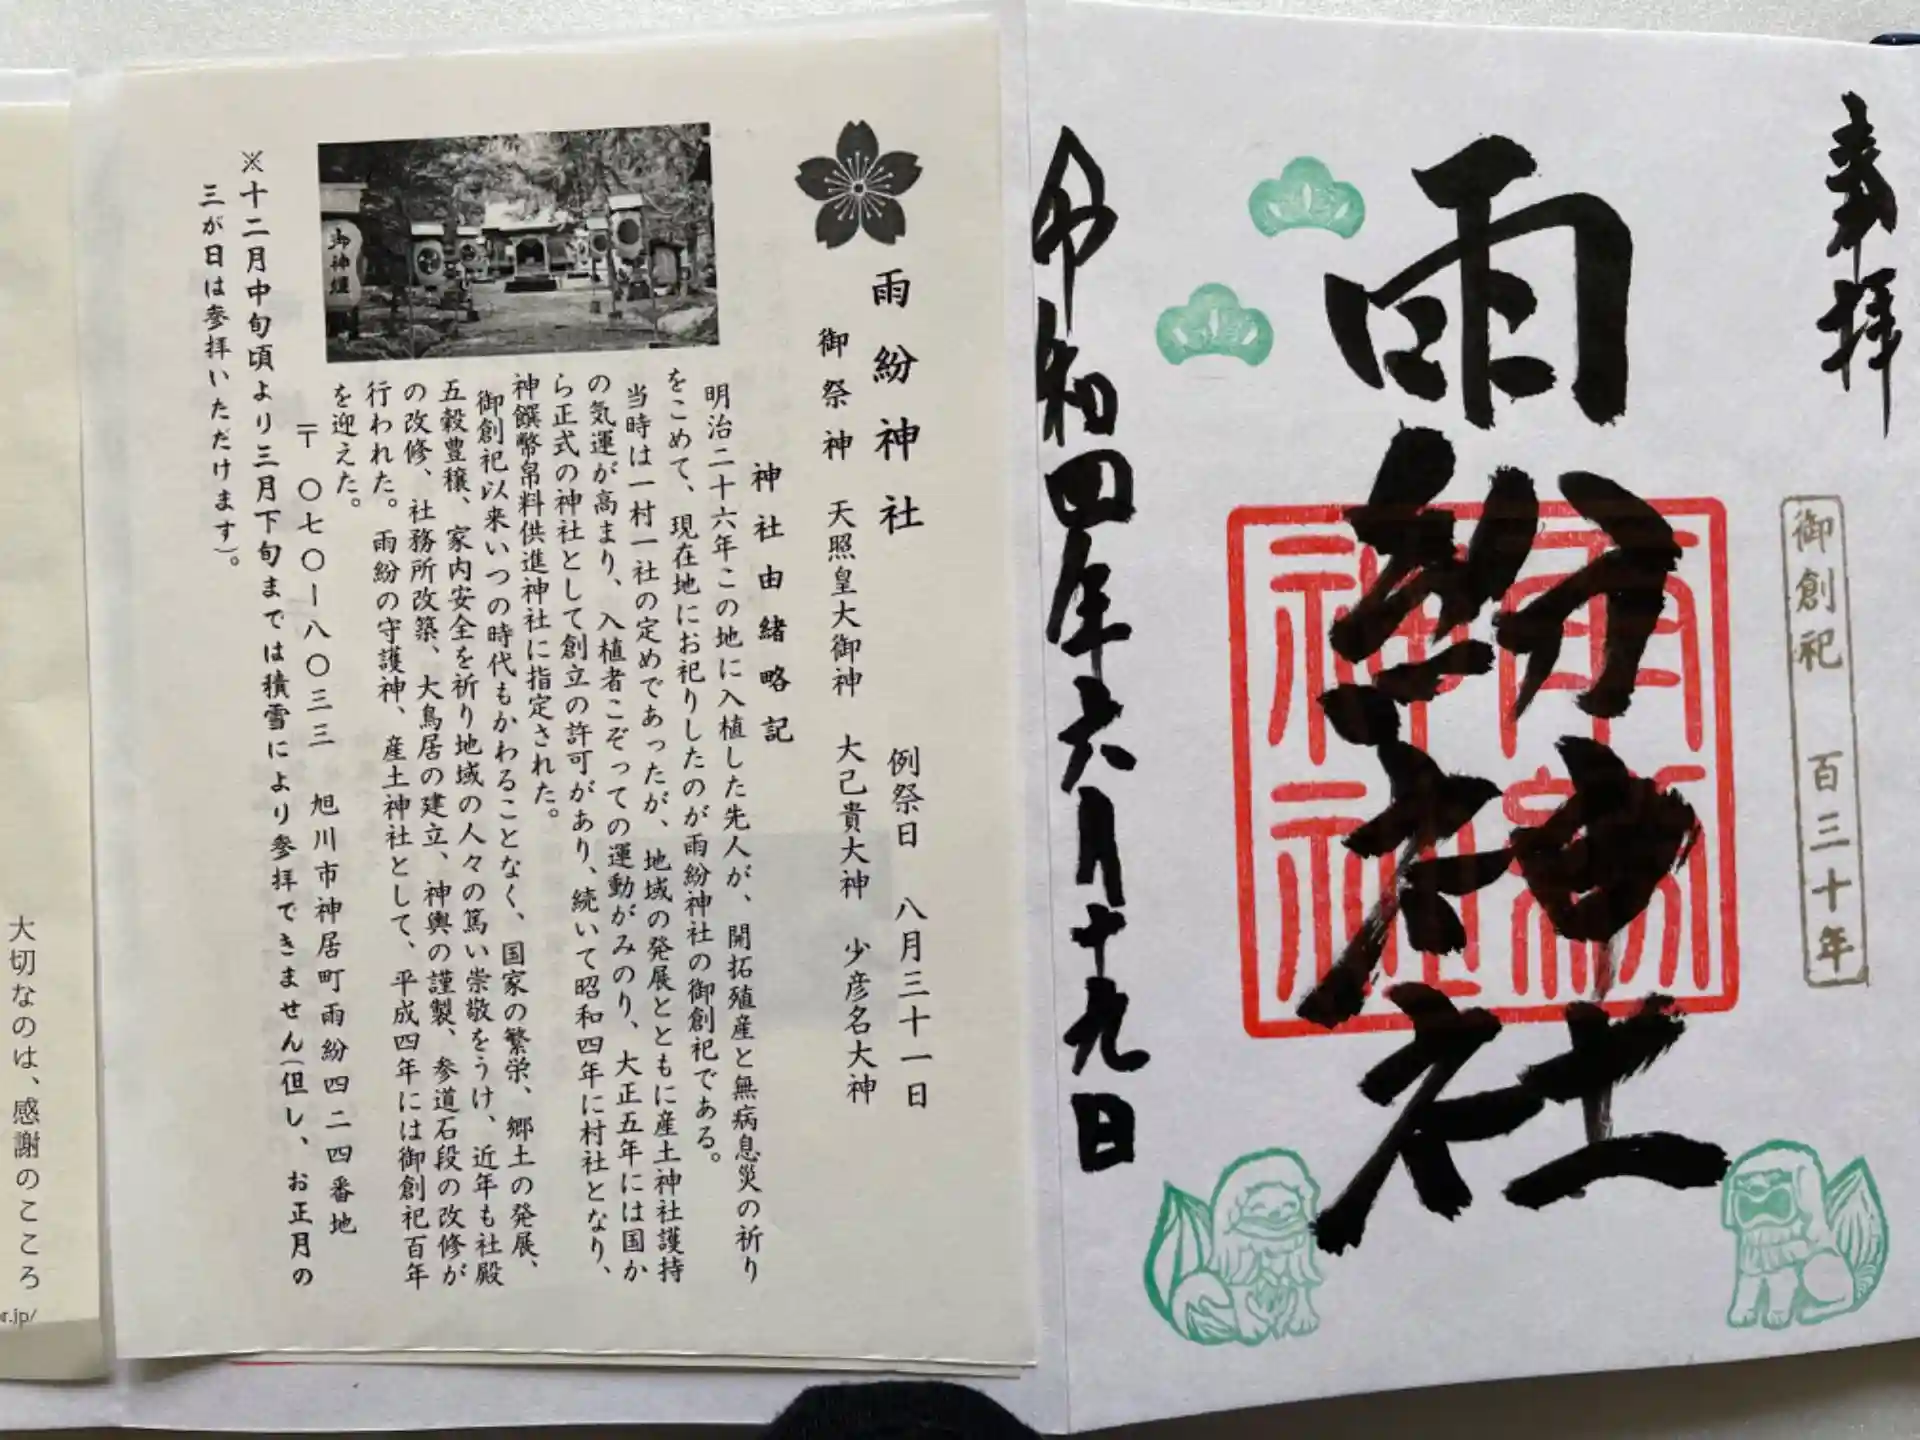 奉拝
御創祀 百三十年
雨紛神社
雨紛
神社
令和四年六月十九日
雨紛神社
例祭日 八月三十一日
御祭神 天照皇大御神 大己貴大神 少彦名大神
神社由緒略記
明治二十六年この地に入植した先人が、開拓殖産と無病息災の祈り
をこめて、現在地にお祀りしたのが雨紛神社の御創祀である。
当時は一村一社の定めであったが、地域の発展とともに産土神社護持
の気運が高まり、入植者こぞっての運動がみのり、大正五年には国か
ら正式の神社として創立の許可があり、続いて昭和四年に村社となり、
神饌幣帛料供進神社に指定された。
御創祀以来いつの時代もかわることなく、国家の繁栄、郷土の発展、
五穀豊穣、家内安全を祈り地域の人々の篤い崇敬をうけ、近年も社殿
の改修、社務所改築、大鳥居の建立、神輿の謹製、参道石段の改修が
行われた。雨紛の守護神、産土神社として、平成四年には御創祀百年
を迎えた。
〒 〇七〇ー八〇三三 旭川市神居町雨紛四二四番地
※十二月中旬頃より三月下旬までは積雪により参拝できません(但し、お正月の
三が日は参拝いただけます)。
御神燈
大切なのは、感謝のこころ
r.jp/